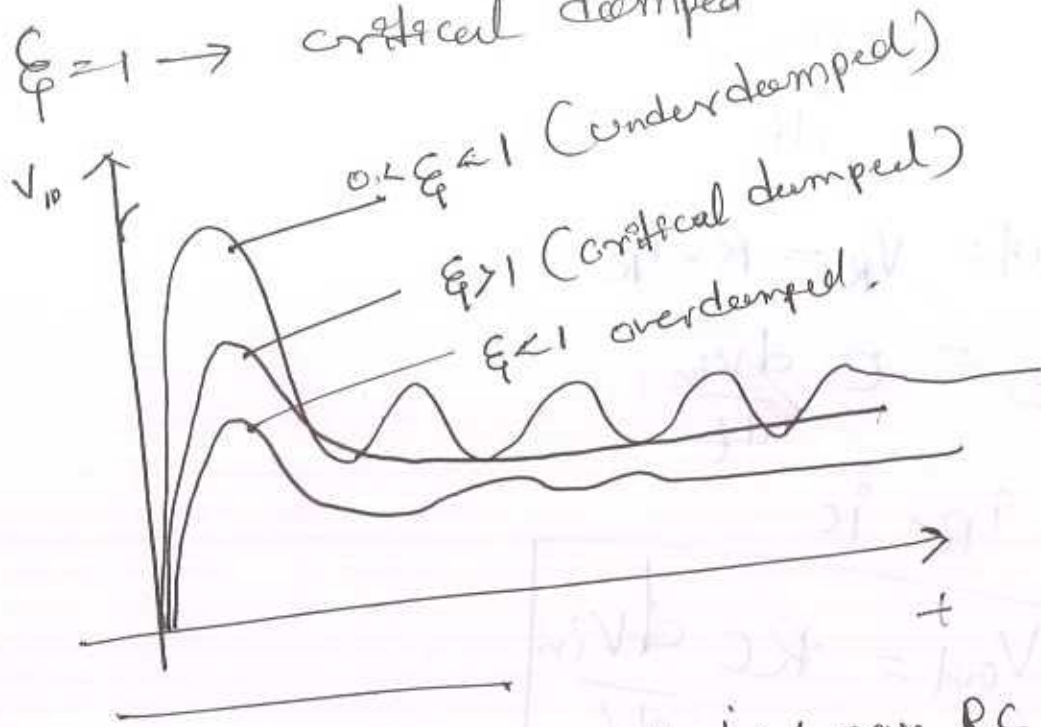 ξ = 1 → critical damped
V₁₀
0 < ξ < 1 (underdamped)
ξ > 1 (critical damped)
ξ < 1 overdamped.
t